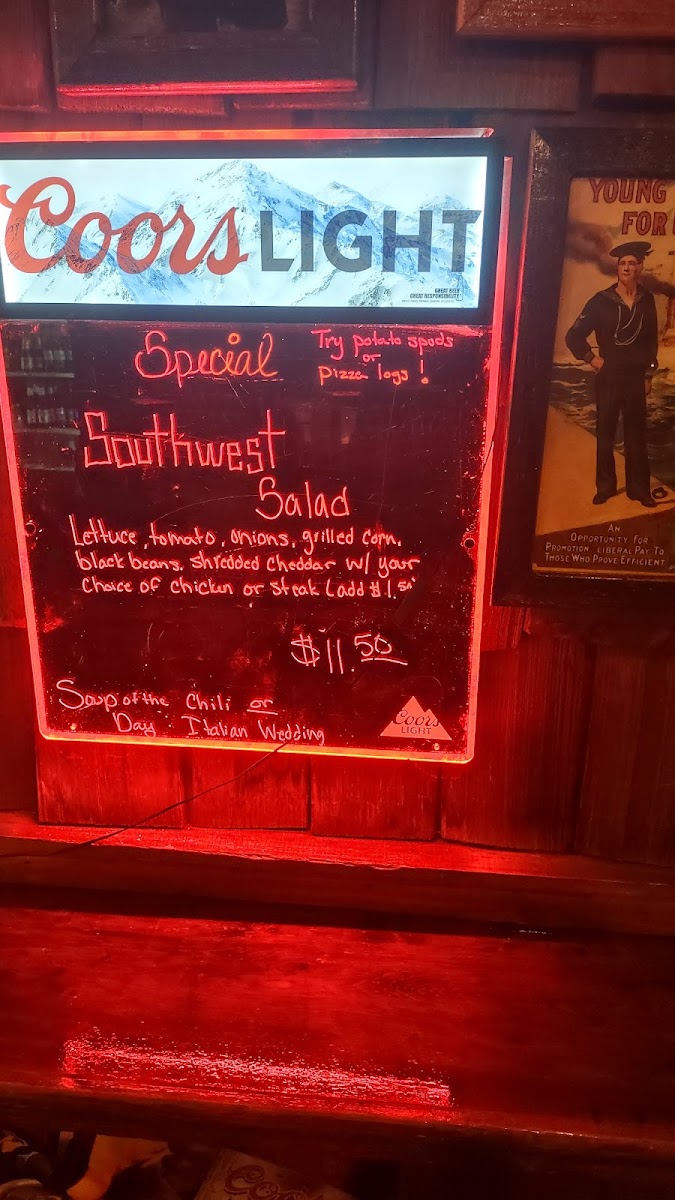 Coors LIGHT
GREAT BEER
GREAT RESPONSIBILITY
Special
Try potato spuds
or
pizza logs !
Southwest
Salad
Lettuce, tomato, onions, grilled corn,
black beans, shredded cheddar w/ your
choice of chicken or steak (add $1.50
$11.50
Soup of the Chili or
Day: Italian Wedding
Coors
LIGHT
YOUNG
FOR
AN
OPPORTUNITY FOR
PROMOTION LIBERAL PAY TO
THOSE WHO PROVE EFFICIENT